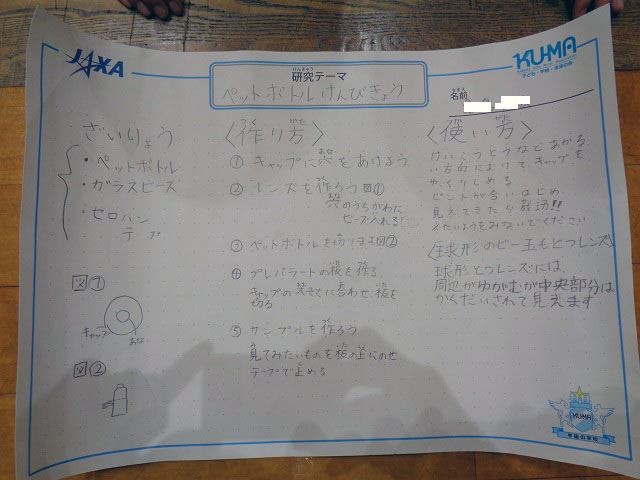 JAXA
KU-MA
けんきゅう
研究テーマ
ペットボトルけんびきょう
なまえ
名前
ざいりょう
・ペットボトル
・ガラスビーズ
・セロハン
テープ
図①
キャップ
あな
図②
〈作り方〉
①キャップに穴をあけよう
②レンズを作ろう図①
穴のうちがわに
ビーズ入れる
③ペットボトルを切ります図②
④プレパラートの板を作る
キャップの大きさに合わせ板を
切る
⑤サンプルを作ろう
見てみたいものを板の上にのせ
テープで止める
〈使い方〉
けいこうとうなどあかる
い方向にむけてキャップを
ゆっくりしめる
ピントが合いはじめ
見えてきたら
たいようをみないでください
〈球形のビー玉もとつレンズ〉
球形とつレンズには
周辺がゆがむが中央部分は
かくだいされて見えます
KUMA
宇宙の学校